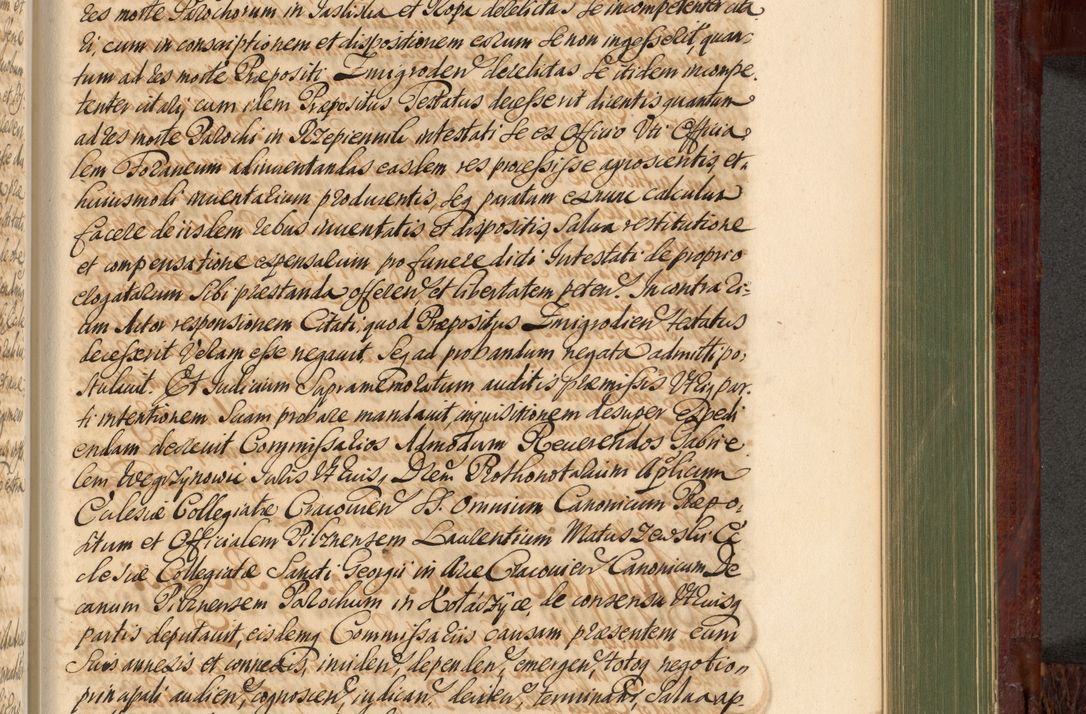 res morte Parochorum in Jasliska et Ropa derelictas se incompetenter cita
ri, cum in conscriptionem et dispositionem earum se non ingesserit, quan-
tum ad res morte Præpositi Zmigroden derelictas se itidem incompe-
tenter citari, cum idem Præpositus Testatus decesserit dicentis quantum
ad res morte Parochi in Rzepiennik intestati se ex Officio Uti Officia
lem Foraneum adinventandas easdem res processisse agnoscentis, et
huiusmodi inventarium producentis, seq paratum exnunc calculum
facere de iisdem rebus inventatis et dispositis, salva restitutione
et compensatione expensarum pro funere dicti Intestati de proprio
erogatarum sibi præstanda offeren et libertatem peten. In contrari-
um Actor responsionem Citati, quod Præpositus Zmigrodien testatus
decesserit Veram esse negavit, seq ad probandum negata admitti po-
stulavit. Et Judicium Supramemoratum auditis præmissis Utriq par-
ti intentionem suam probare mandavit, inquisitionem desuper expedi
endam decrevit Commissarios Admodum Reverendos Gabrie-
lem Węgrzynowic Juris Utriusq Drem Prothonotarium Aplicum
Ecclesiæ Collegiatæ Cracovien SS. Omnium Canonicum Præpo-
situm et Officialem Pilznensem Laurentium Matuszewski Ec
clesiæ Collegiatæ Sancti Georgii in Arce Cracovien Canonicum De
canum Pilznensem Parochum in Kołaczyce, de consensu Utriusq
partis deputavit, eisdemq Commissariis causam præsentem cum
suis annexis et connexis, inciden, dependen, emergen, totoq negotio
principali audien, cognoscen, judican, deciden, terminan, salva ap-